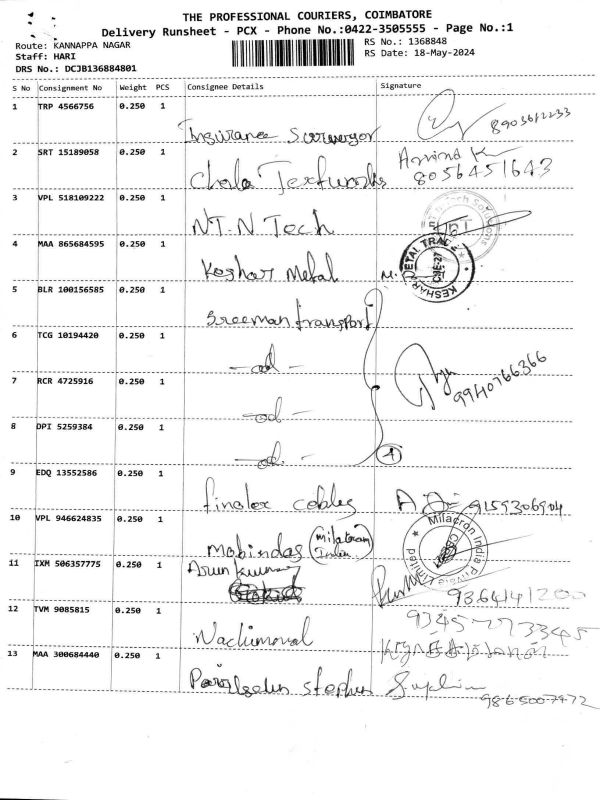 THE PROFESSIONAL COURIERS, COIMBATORE
Delivery Runsheet - PCX - Phone No.:0422-3505555 - Page No.:1
Route: KANNAPPA NAGAR
Staff: HARI
DRS No.: DCJB136884801
RS No.: 1368848
RS Date: 18-May-2024
S No Consignment No Weight PCS Consignee Details Signature
1 TRP 4566756 0.250 1 Insurance Surveyor 8903612233
2 SRT 15189058 0.250 1 Chola Textworks Arvind K 8056451643
3 VPL 518109222 0.250 1 NT.N Tech
4 MAA 865684595 0.250 1 Keshar Metal KESHAR METAL TRADE
5 BLR 100156585 0.250 1 Sreeman transport
6 TCG 10194420 0.250 1 -do-
7 RCR 4725916 0.250 1 -do- 9940766366
8 DPI 5259384 0.250 1 -do- 4
9 EDQ 13552586 0.250 1 finolex cables 9159306904
10 VPL 946624835 0.250 1 Mobindas (Milacron India) Milacron India Private Limited
11 IXM 506357775 0.250 1 Arun kumar 9364141200
12 TVM 9085815 0.250 1 9345773345
13 MAA 300684440 0.250 1 Stephen 98-6500-7472